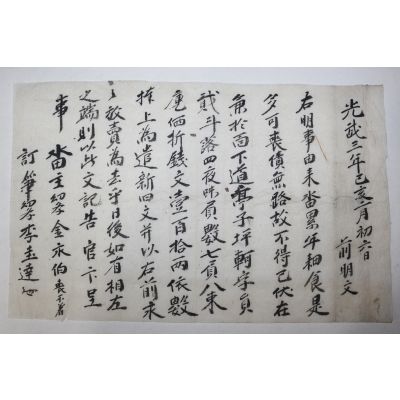 光武三年己亥二月初六日
前明文
右明事由來畓累年耕食是
多可喪債無路故不得已伏在
於面下道亭子坪字員
貳斗落四夜味員數七員八束
価折錢文壹百拾兩依數
捧上為遣新旧文并以右前永
々放賣為去乎日後如有相左
之端則以此文記告官卞呈
事 畓主 金永伯 喪不着
訂筆 李圭達